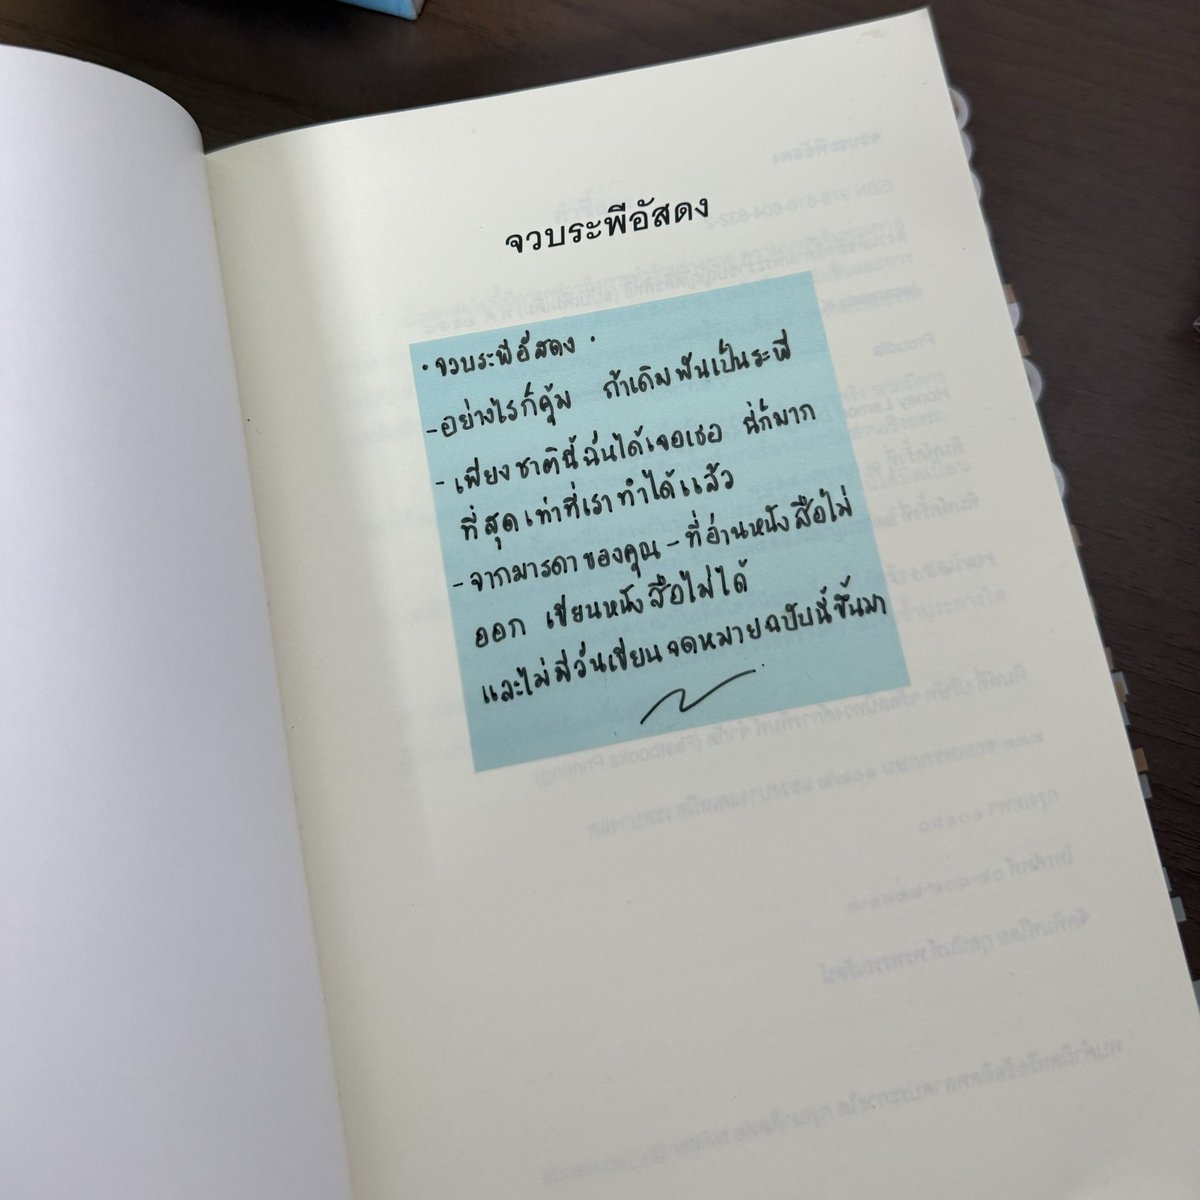 จวบระพีอัสดง
· จวบระพีอัสดง ·
- อย่างไรก็คุ้ม ถ้าเดิมพันเป็นระพี
- เพียงชาตินี้ฉันได้เจอเธอ นี่ก็มาก
ที่สุดเท่าที่เราทำได้แล้ว
- จากมารดาของคุณ - ที่อ่านหนังสือไม่
ออก เขียนหนังสือไม่ได้
และไม่มีวันเขียนจดหมายฉบับนี้ขึ้นมา